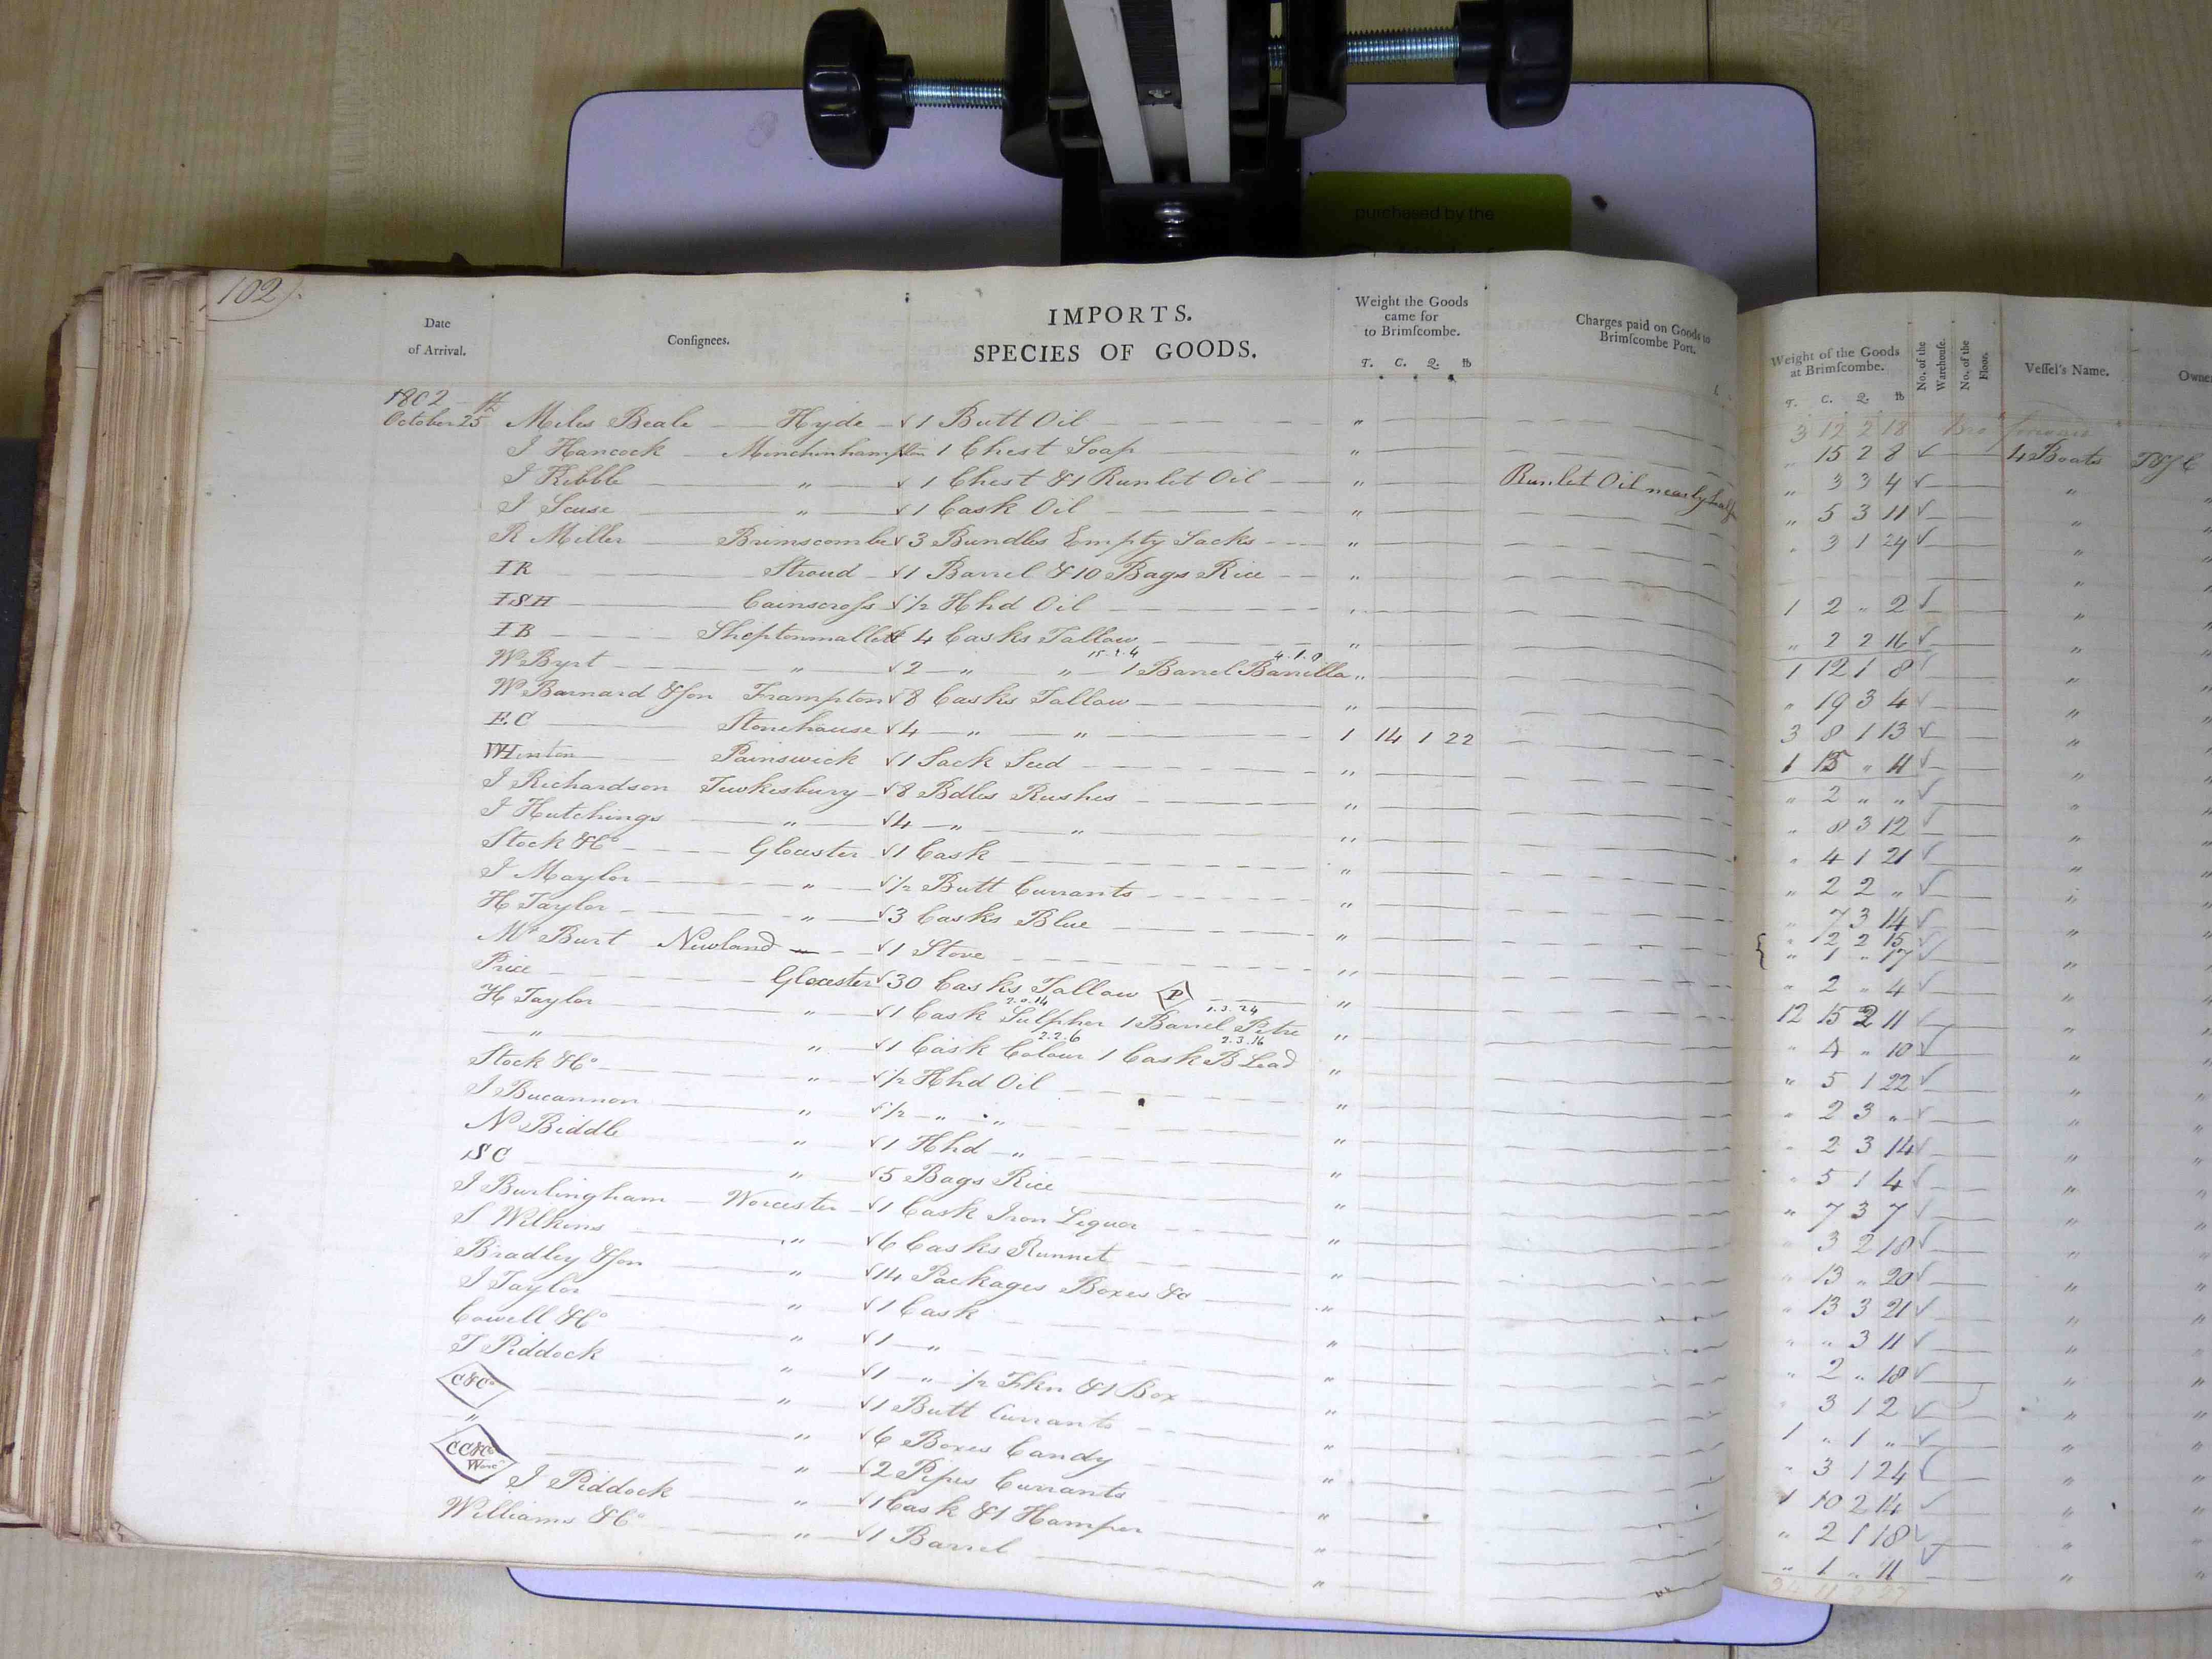 purchased by the
102
Date of Arrival. Consignees. IMPORTS. SPECIES OF GOODS. Weight the Goods came for to Brimscombe. T. C. Q. lb Charges paid on Goods to Brimscombe Port. Weight of the Goods at Brimscombe. T. C. Q. lb No. of the Warehouse. No. of the Floor. Vessel's Name. Owne
1802
3 12 2 18
October 25th Miles Beale — Hyde — √ 1 Butt Oil " " 15 2 8 √ 4 Boats
I Hancock — Minchinhampton √ 1 Chest Soap " " 3 3 4 √ "
I Kibble " √ 1 Chest & 1 Runlet Oil " Runlet Oil nearly half " 5 3 11 √ "
I Scuse " √ 1 Cask Oil " " 3 1 24 √ "
R Miller Brimscombe √ 3 Bundles Empty Sacks " "
IR Stroud √ 1 Barrel & 10 Bags Rice " 1 2 " 2 √ "
ISH Cainscross √ 1/2 Hhd Oil " " 2 2 16 √ "
IB Sheptonmallet √ 4 Casks Tallow " 1 12 1 8 √ "
15.1.4 4.1.0
Wm Byrt " √ 2 " " 1 Barrel Barrilla " " 19 3 4 √ "
W Barnard & Son Frampton √ 8 Casks Tallow " 3 8 1 13 √ "
E.C Stonehouse √ 4 " " 1 14 1 22 1 15 " 11 √ "
WHinton Painswick √ 1 Sack Seed " " 2 " " √ "
I Richardson Tewkesbury √ 8 Bdles Rushes " " 8 3 12 √ "
I Hutchings " √ 4 " " " " 4 1 21 √ "
Stock & Co Glocester √ 1 Cask " 2 2 " √ "
I Maylor " √ 1/2 Butt Currants " " 7 3 14 √ "
H Taylor " √ 3 Casks Blue " { " 2 2 15 √
" 1 " 17 √ "
Mr Burt Newland √ 1 Stove " " 2 " 4 √ "
Price Glocester √ 30 Casks Tallow P " 12 15 2 11 √ "
2.0.14 1.3.24
H Taylor " √ 1 Cask Sulpher 1 Barrel Petre " " 4 " 10 √ "
2.2.6 2.3.16
" " √ 1 Cask Colour 1 Cask B Lead " " 5 1 22 √ "
Stock & Co " √ 1/2 Hhd Oil " " 2 3 " √ "
I Bucannon " √ 1/2 " " " " 2 3 14 √ "
N Biddle " √ 1 Hhd " " " 5 1 4 √ "
ISC " √ 5 Bags Rice " " 7 3 7 √ "
I Burlingham Worcester √ 1 Cask Iron Liquor " " 3 2 18 √ "
S Wilkins " √ 6 Casks Runnet " " 13 " 20 √ "
Bradley & Son " √ 14 Packages Boxes &c " " 13 3 21 √ "
I Taylor " √ 1 Cask " " " 3 11 √ "
Cowell & Co " √ 1 " " " 2 " 18 √ "
T Piddock " √ 1 " 1/2 Fkn & 1 Box " " 3 1 2 √ "
C&Co " √ 1 Butt Currants " 1 " 1 " √ "
" " √ 6 Boxes Candy " " 3 1 24 √ "
CC&Co Worcr " √ 2 Pipes Currants " 1 10 2 14 √ "
I Piddock " √ 1 Cask & 1 Hamper " " 2 1 18 √ "
Williams & Co " √ 1 Barrel " " 1 " 11 √ "